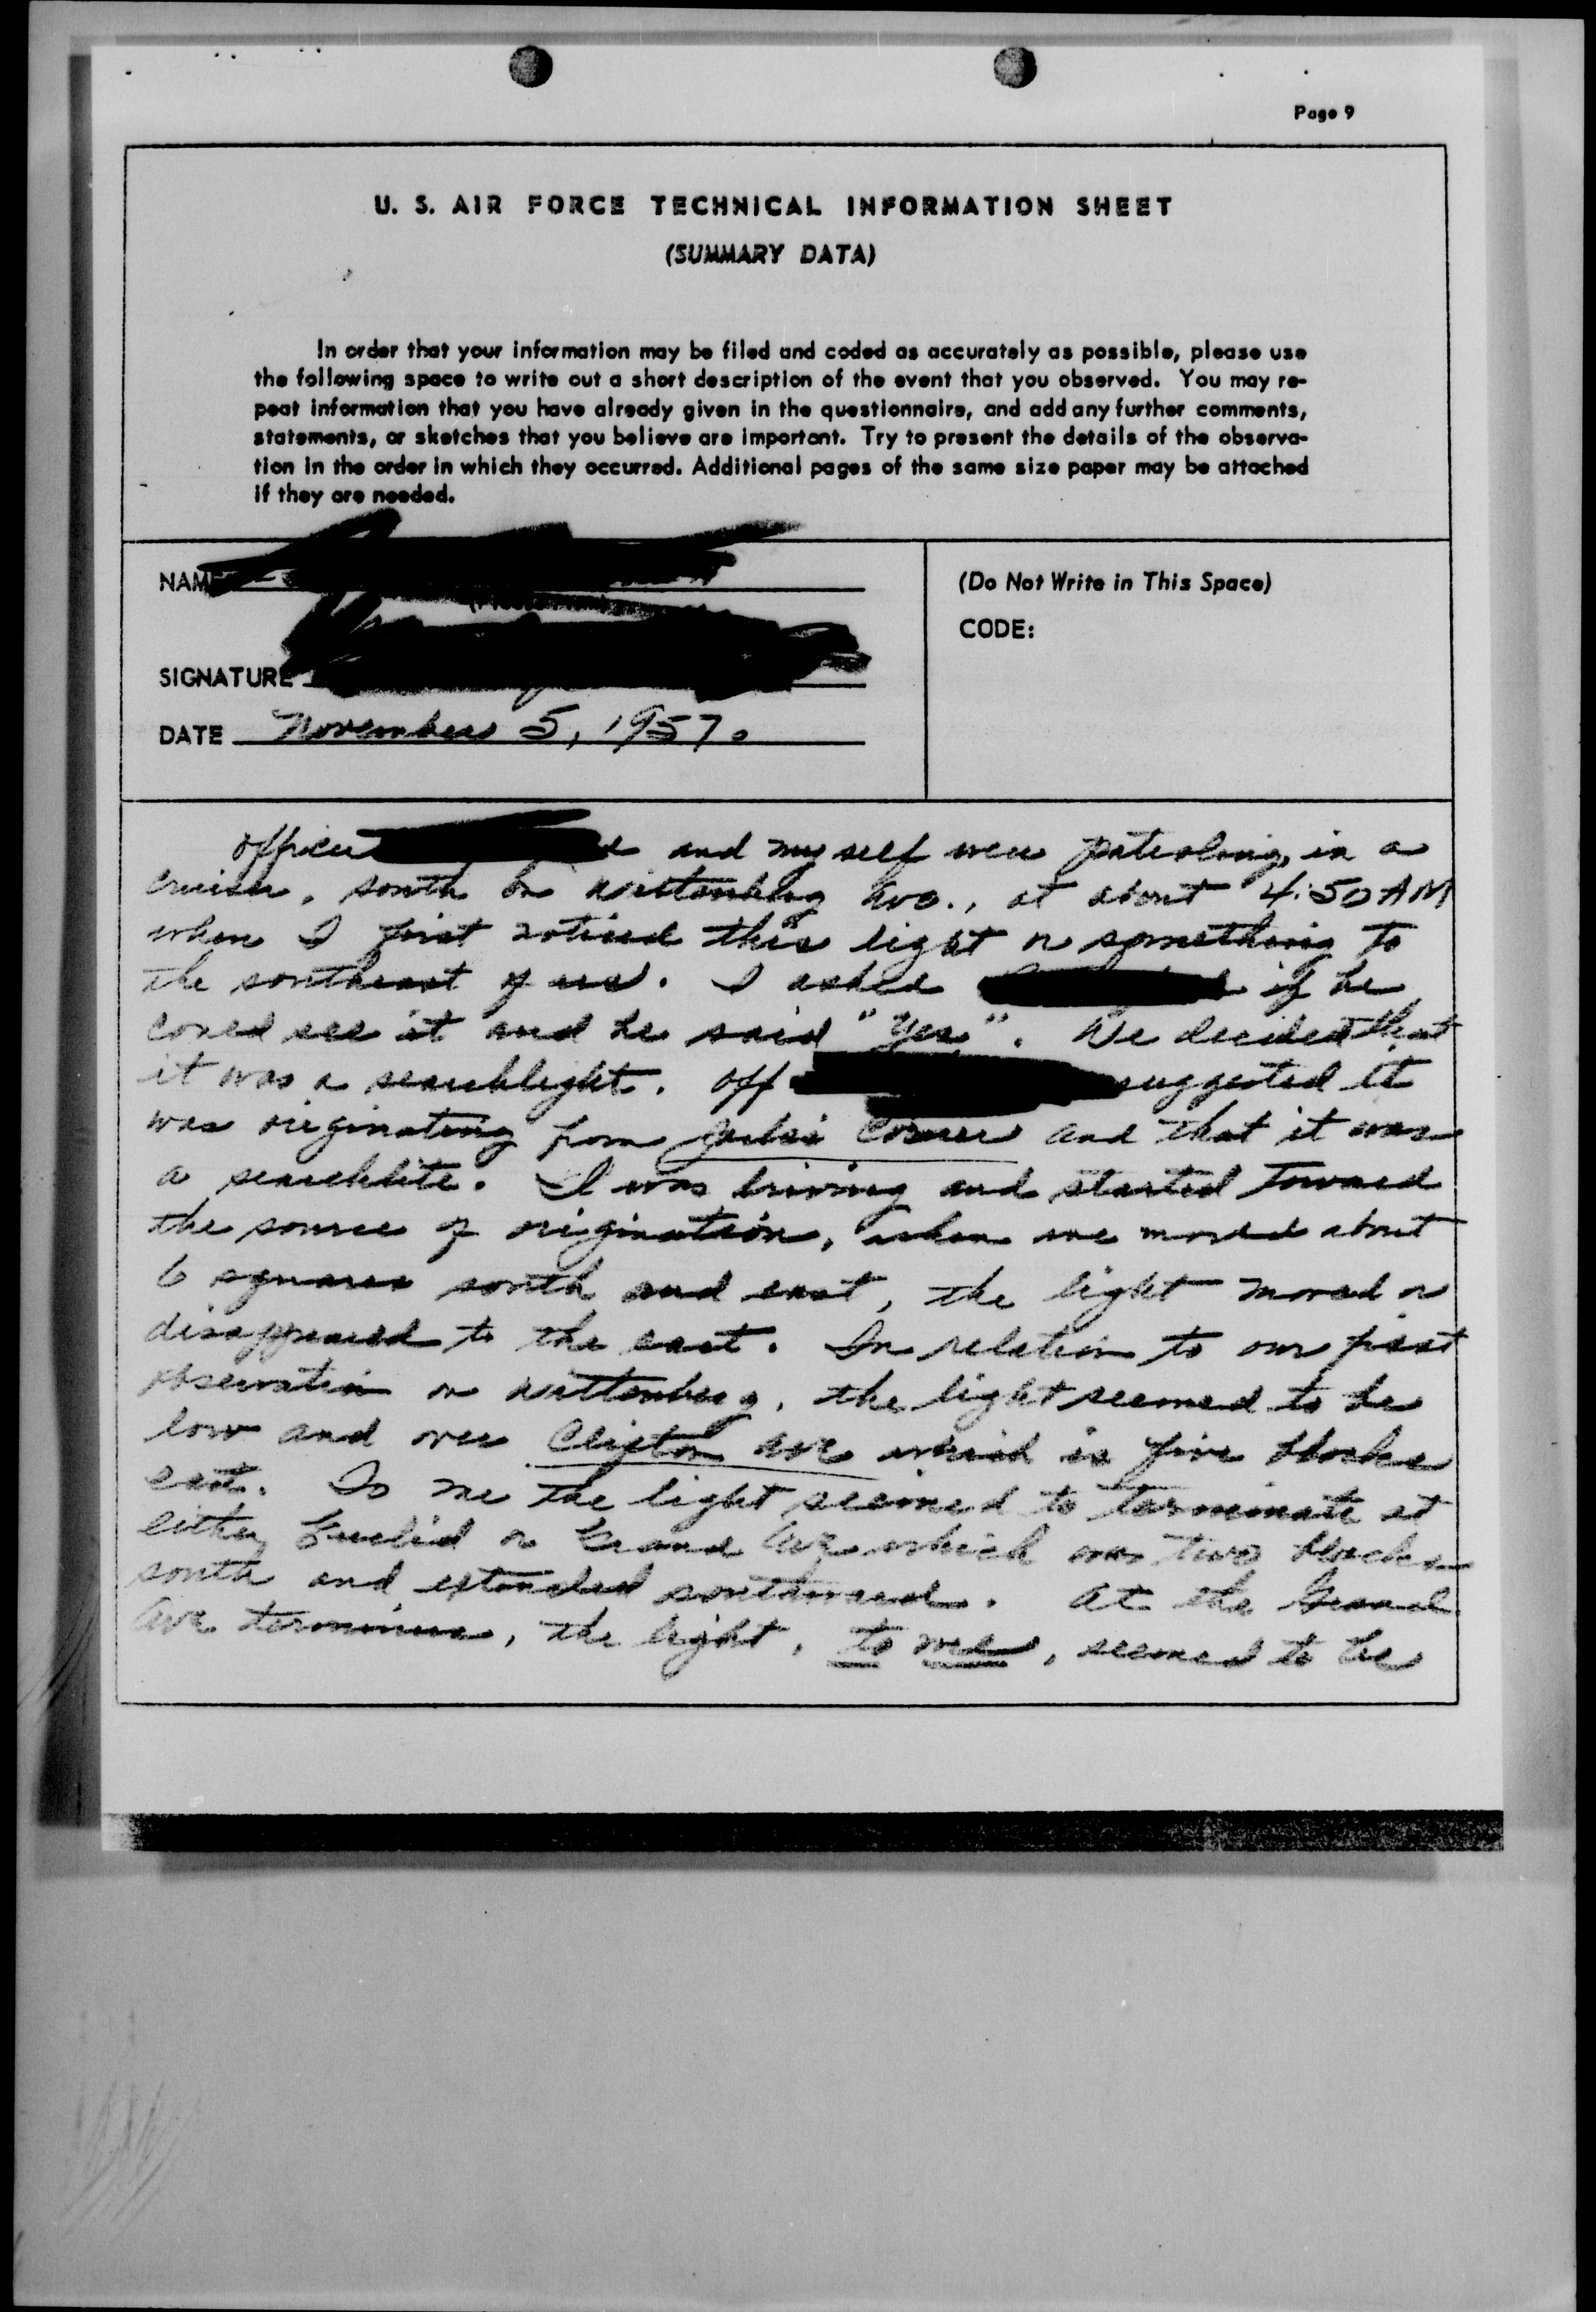 Page 9
U. S. AIR FORCE TECHNICAL INFORMATION SHEET
(SUMMARY DATA)
In order that your information may be filed and coded as accurately as possible, please use
the following space to write out a short description of the event that you observed. You may re-
peat information that you have already given in the questionnaire, and add any further comments,
statements, or sketches that you believe are important. Try to present the details of the observa-
tion in the order in which they occurred. Additional pages of the same size paper may be attached
if they are needed.
NAME
(Do Not Write in This Space)
CODE:
SIGNATURE
DATE November 5, 1957.
Officer and myself were patroling, in a
cruiser, south on Wittenberg Ave., at about 4:50 AM
when I first noticed this light or something to
the southeast of us. I asked if he
could see it and he said "Yes". We decided that
it was a searchlight. Off suggested it
was originating from Corner and that it was
a searchlite. I was driving and started toward
the source of origination, when we moved about
6 squares south and east, the light moved or
disappeared to the east. In relation to our first
observation on Wittenberg, the light seemed to be
low and over Clifton Ave which is five blocks
east. To me the light seemed to terminate at
either Euclid or Grand Ave which was two blocks
south and extended southward. At the Grand
Ave terminus, the light, to me, seemed to be